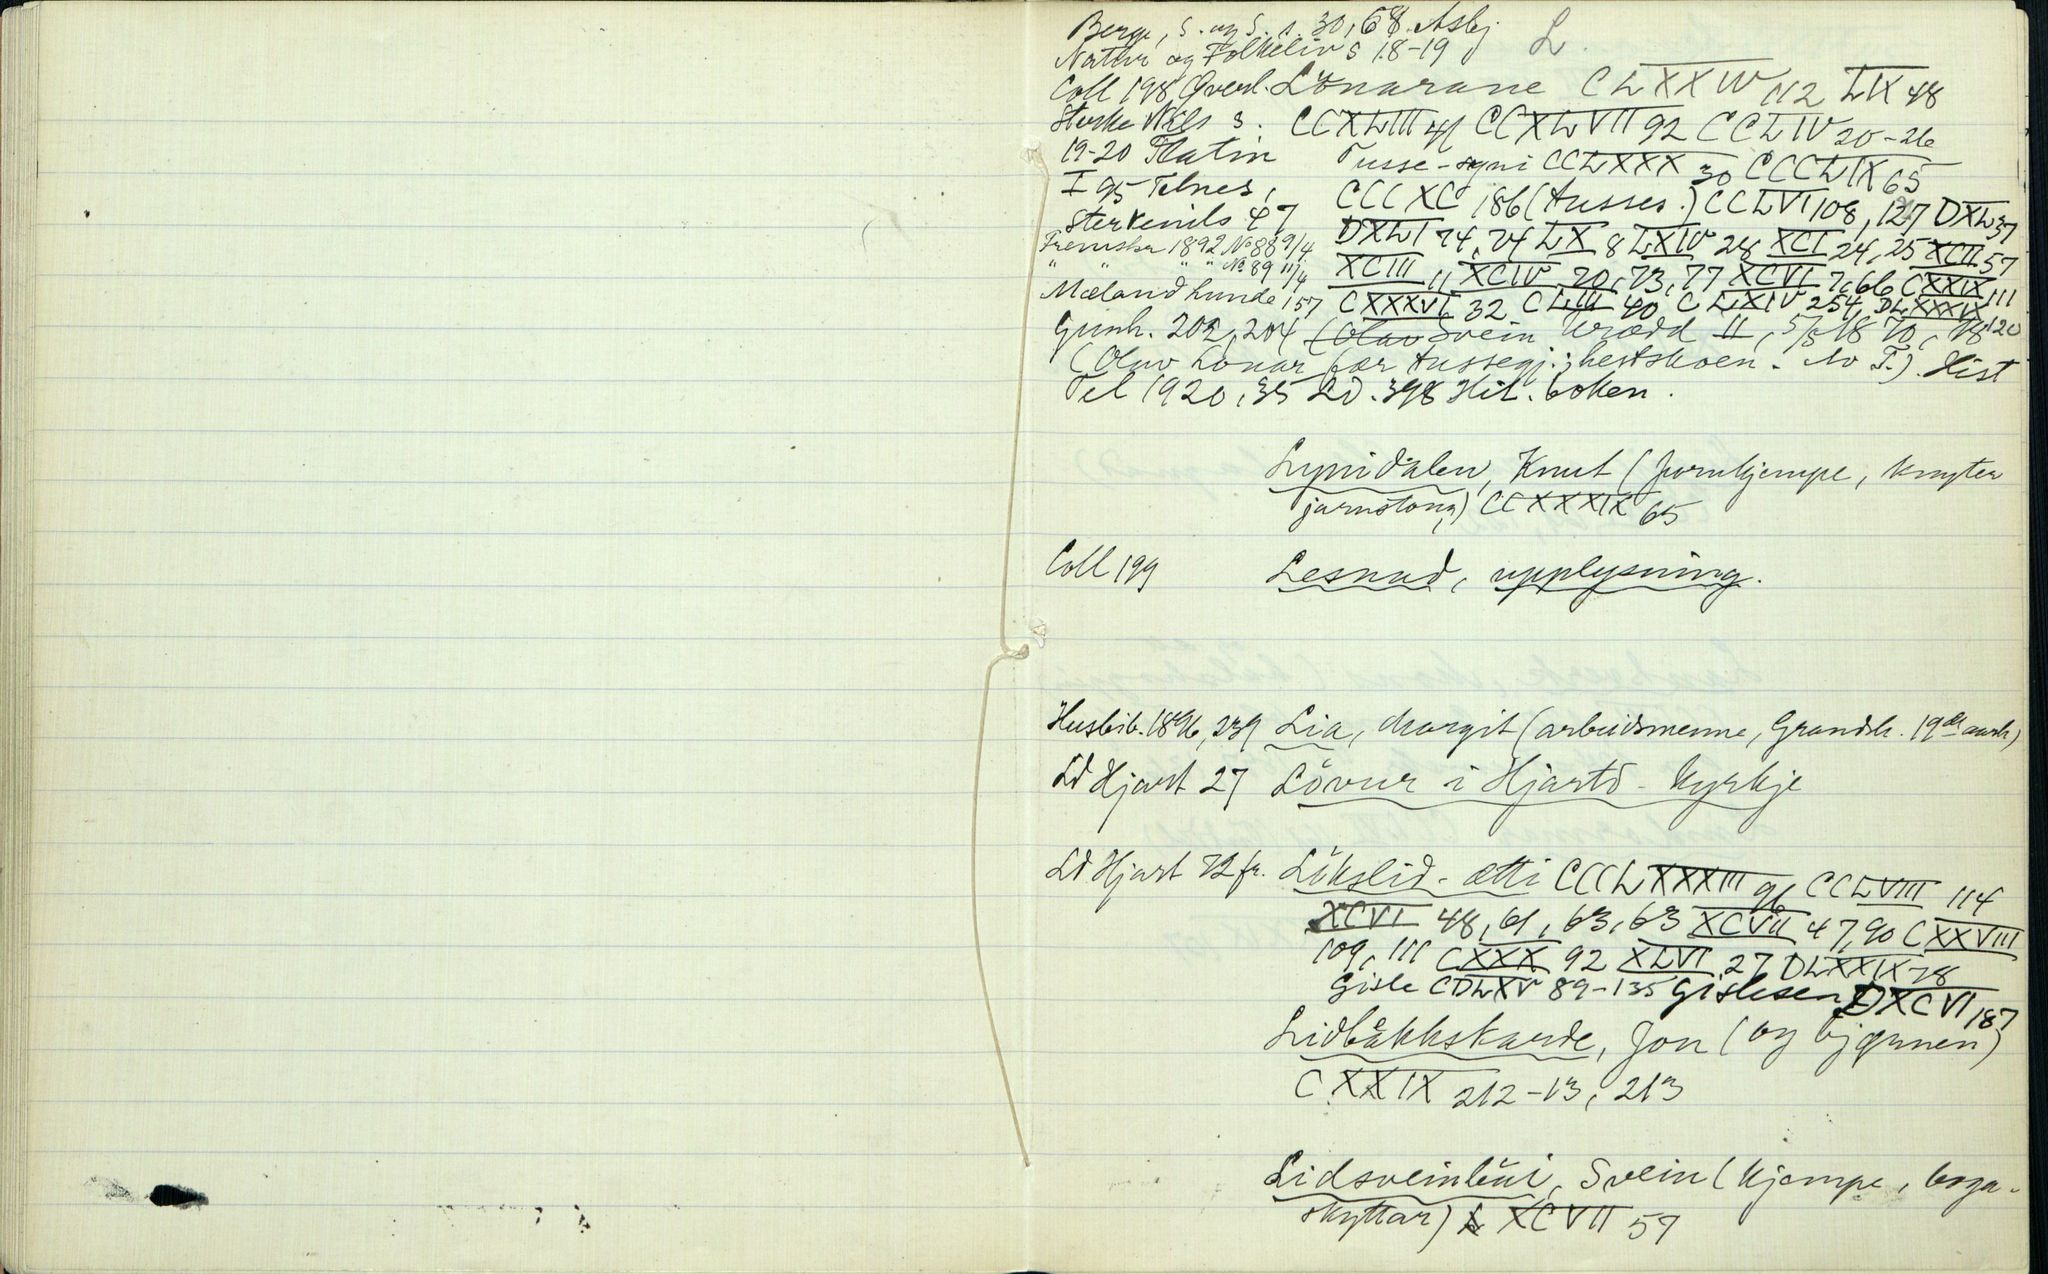 L.
Berge, S. og S. s. 30, 68. Asbj
Natur og Folkeliv s 18-19
Coll 198 Qverl. Lönarane CLXXIV 112 LIX 48
Sterke Nils s. CCXLIII 41 CCXLVII 92 CCLIV 20-26
19-20 Flatin Tusse-syni CCLXXX 30 CCCLIX 65
I 95 Telnes, CCCXC 186 (tusses.) CCLVI 108, 127 DXL 37
Sterkenils 47 DXLI 74, 74 LX 8 LXIV 28 XCI 24, 25 XCII 57
Fremskr 1892 No 88 9/4
" " " No 89 11/4 XCIII 11 XCIV 20, 73, 77 XCVI 7, 66 CXXIX 111
Mæland hunde 157 CXXXVI 32 CLIII 40 CLXIV 254, DLXXXIX 120
Gunh. 202, 204 (Olav Svein Uræдd II, 5/3 18 70, 18
(Olav Lonar fær tussegj.; hestskoen. No F.) Hist
Tel 1920, 35 LD. 398 Hit. boken.
Lynidalen, Knut (jarnkjempe, knyter
jarnstong) CCXXXIX 65
Coll 199 Lesnad, upplysning.
Husbib. 1896, 239 Lia, Margit (arbeidsmenne, Grandsh. 19de aarh)
LD Hjart 27 Lövur i Hjartd-kyrkje
LD Hjart 72 fr. Lökslid-ætti CCCLXXXIII 96 CCLVIII 114
XCVI 48, 61, 63, 63 XCVII 47, 90 CXXVIII
109, 111 CXXX 92 XLVI 27 DLXXIX 78
Gisle CDLXV 89-135 Gislesen DXCVI 187
Lidbåkkskarde, Jon (og bjørnen)
CXXIX 212-13, 213
Lidsveinbui, Svein (kjempe, boga-
skyttar) XCVII 59